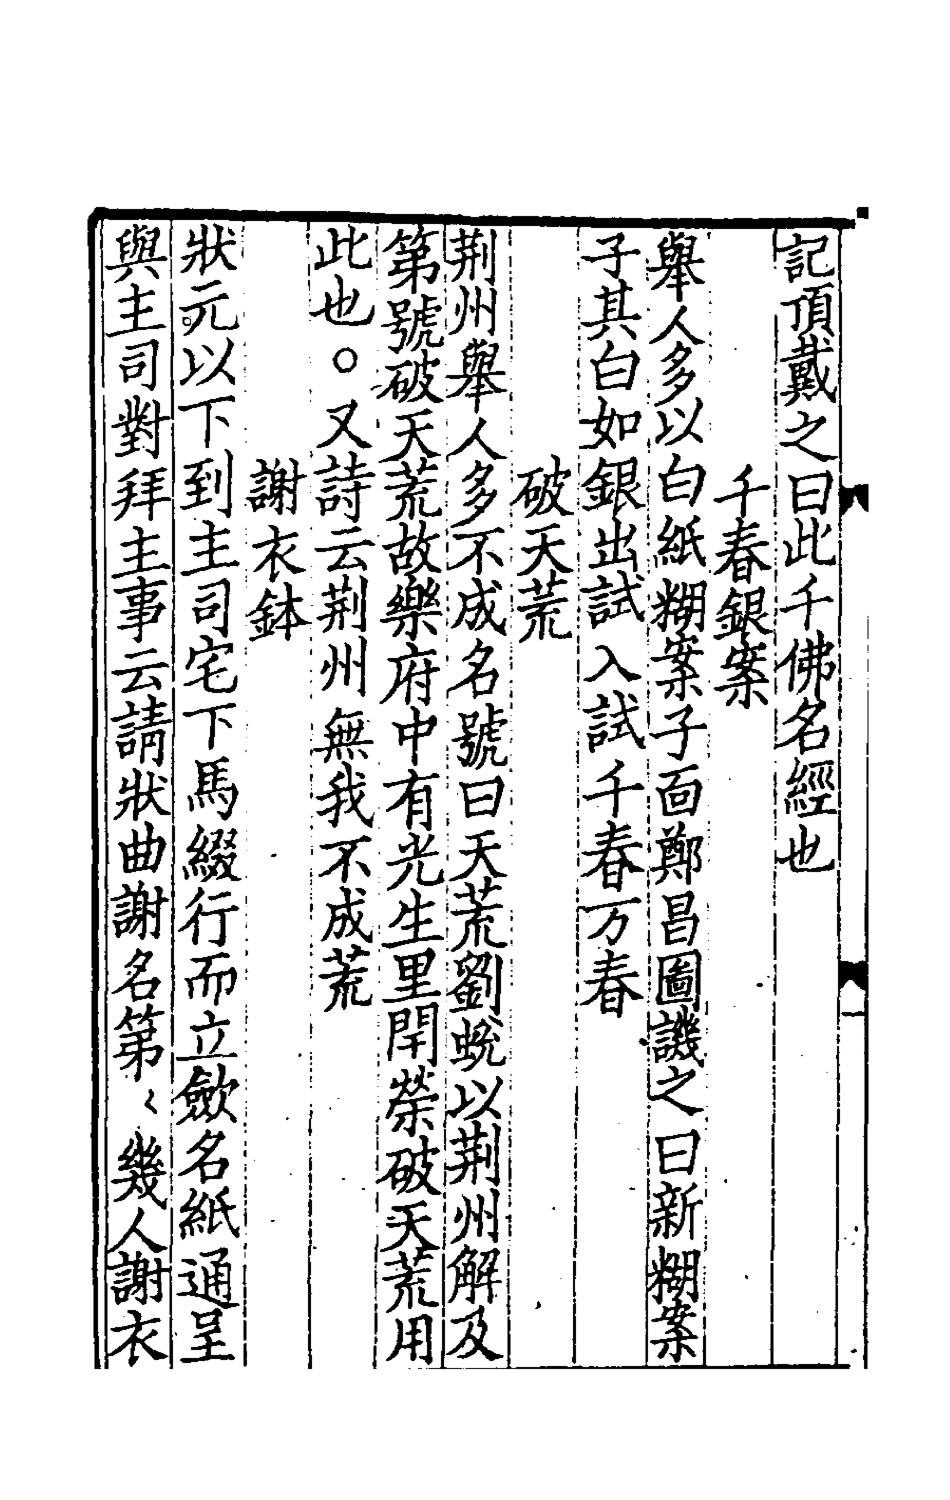 記頂戴之曰此千佛名經也
千春銀案
舉人多以白紙糊案子面鄭昌圖譏之曰新糊案
子其白如銀出試入試千春万春
破天荒
荆州舉人多不成名號曰天荒劉蛻以荆州解及
第號破天荒故樂府中有光生里閈榮破天荒用
此也○又詩云荆州無我不成荒
謝衣鉢
狀元以下到主司宅下馬綴行而立歛名紙通呈
與主司對拜主事云請狀曲謝名第〻幾人謝衣